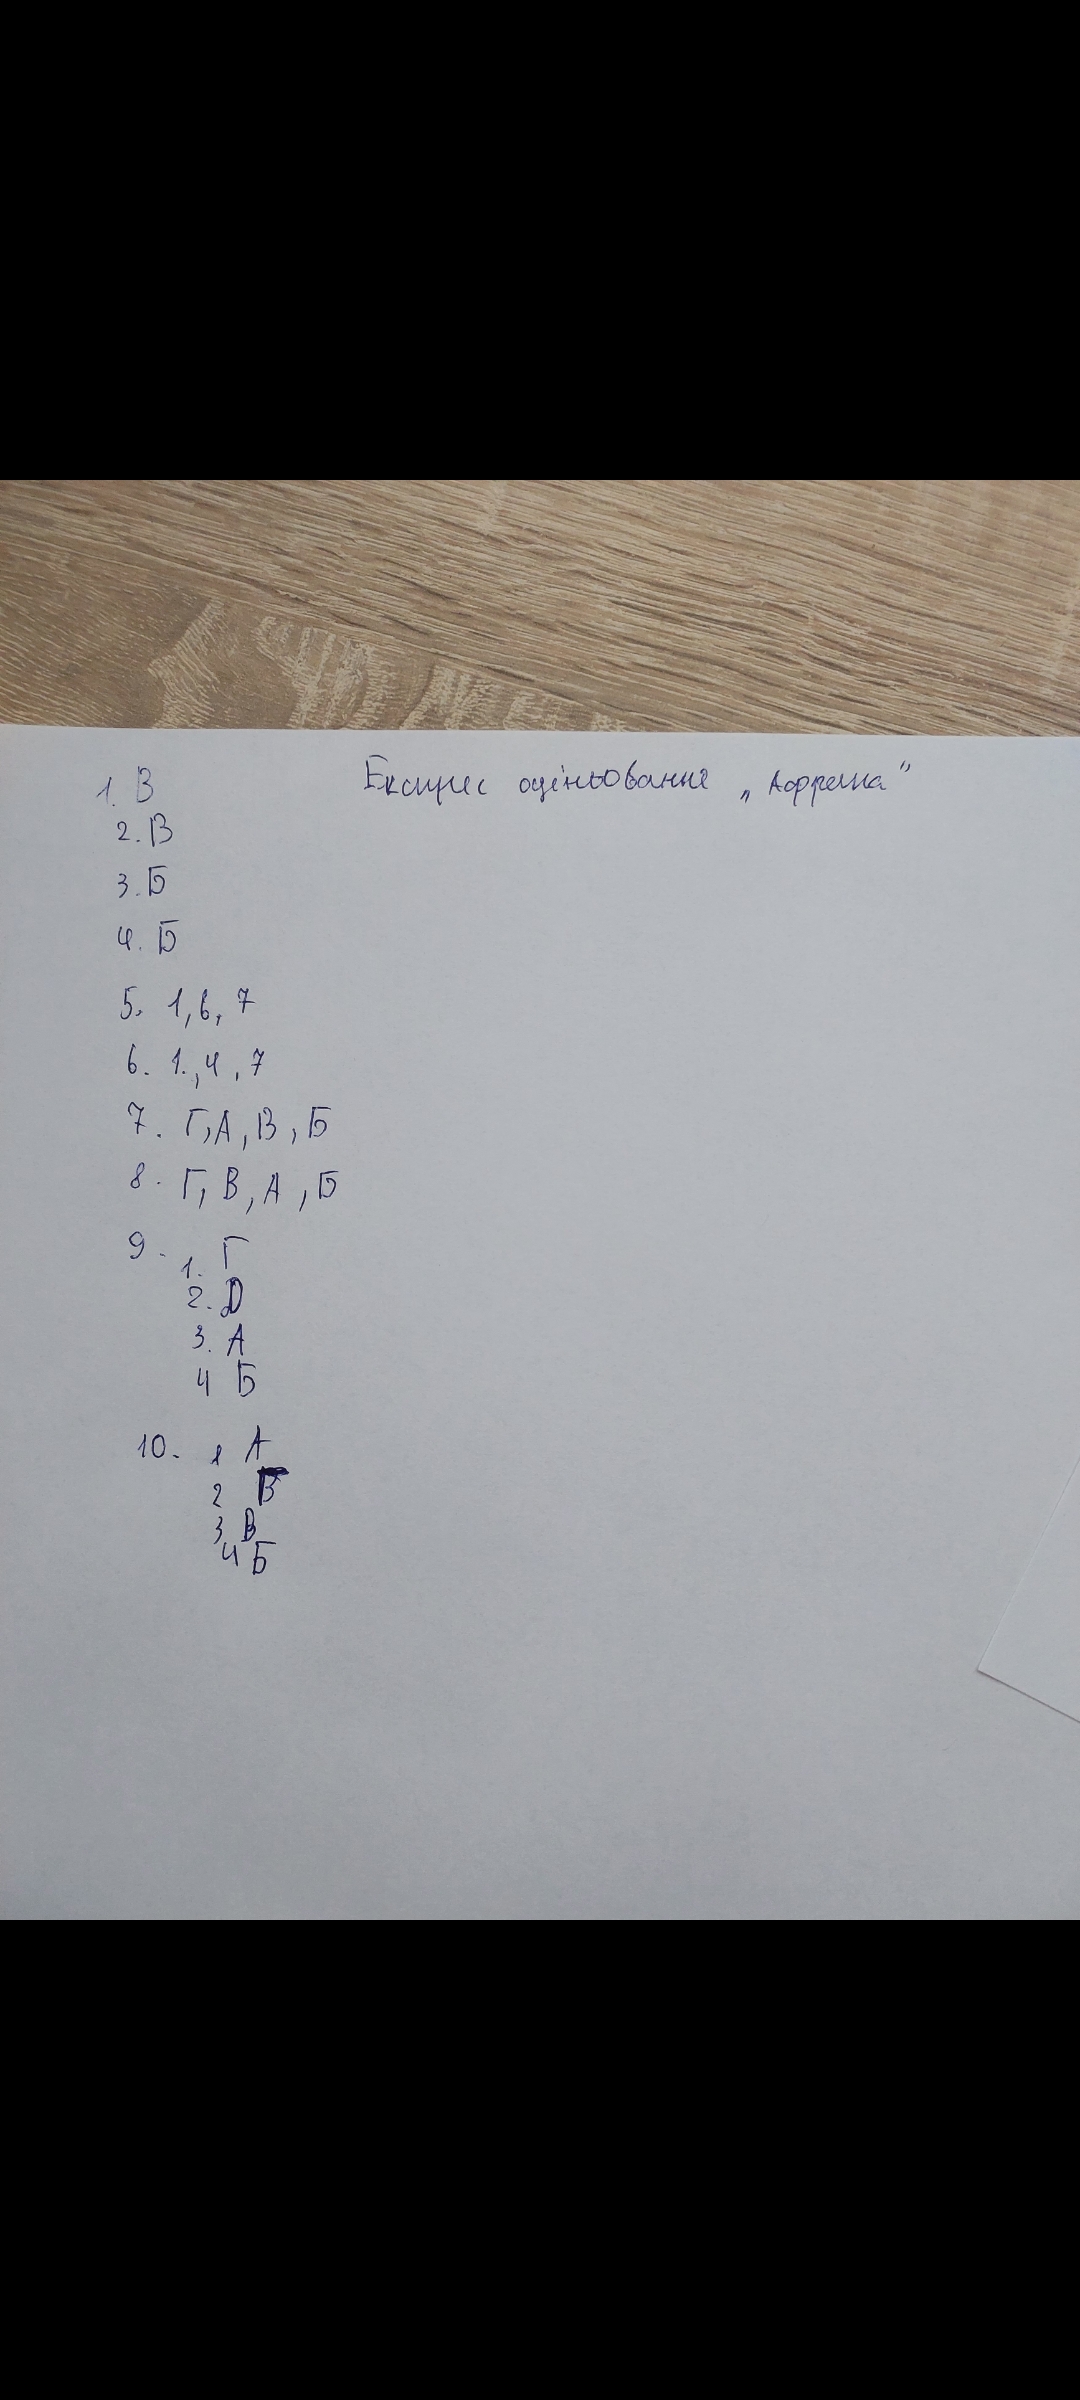 Експрес оцінювання „Африка”
1. В
2. В
3. Б
4. Б
5. 1, 6, 7
6. 1., 4, 7
7. Г, А, В, Б
8. Г, В, А, Б
9. 1. Г
2. Д
3. А
4 Б
10. 1 А
2
3 В
4 Б